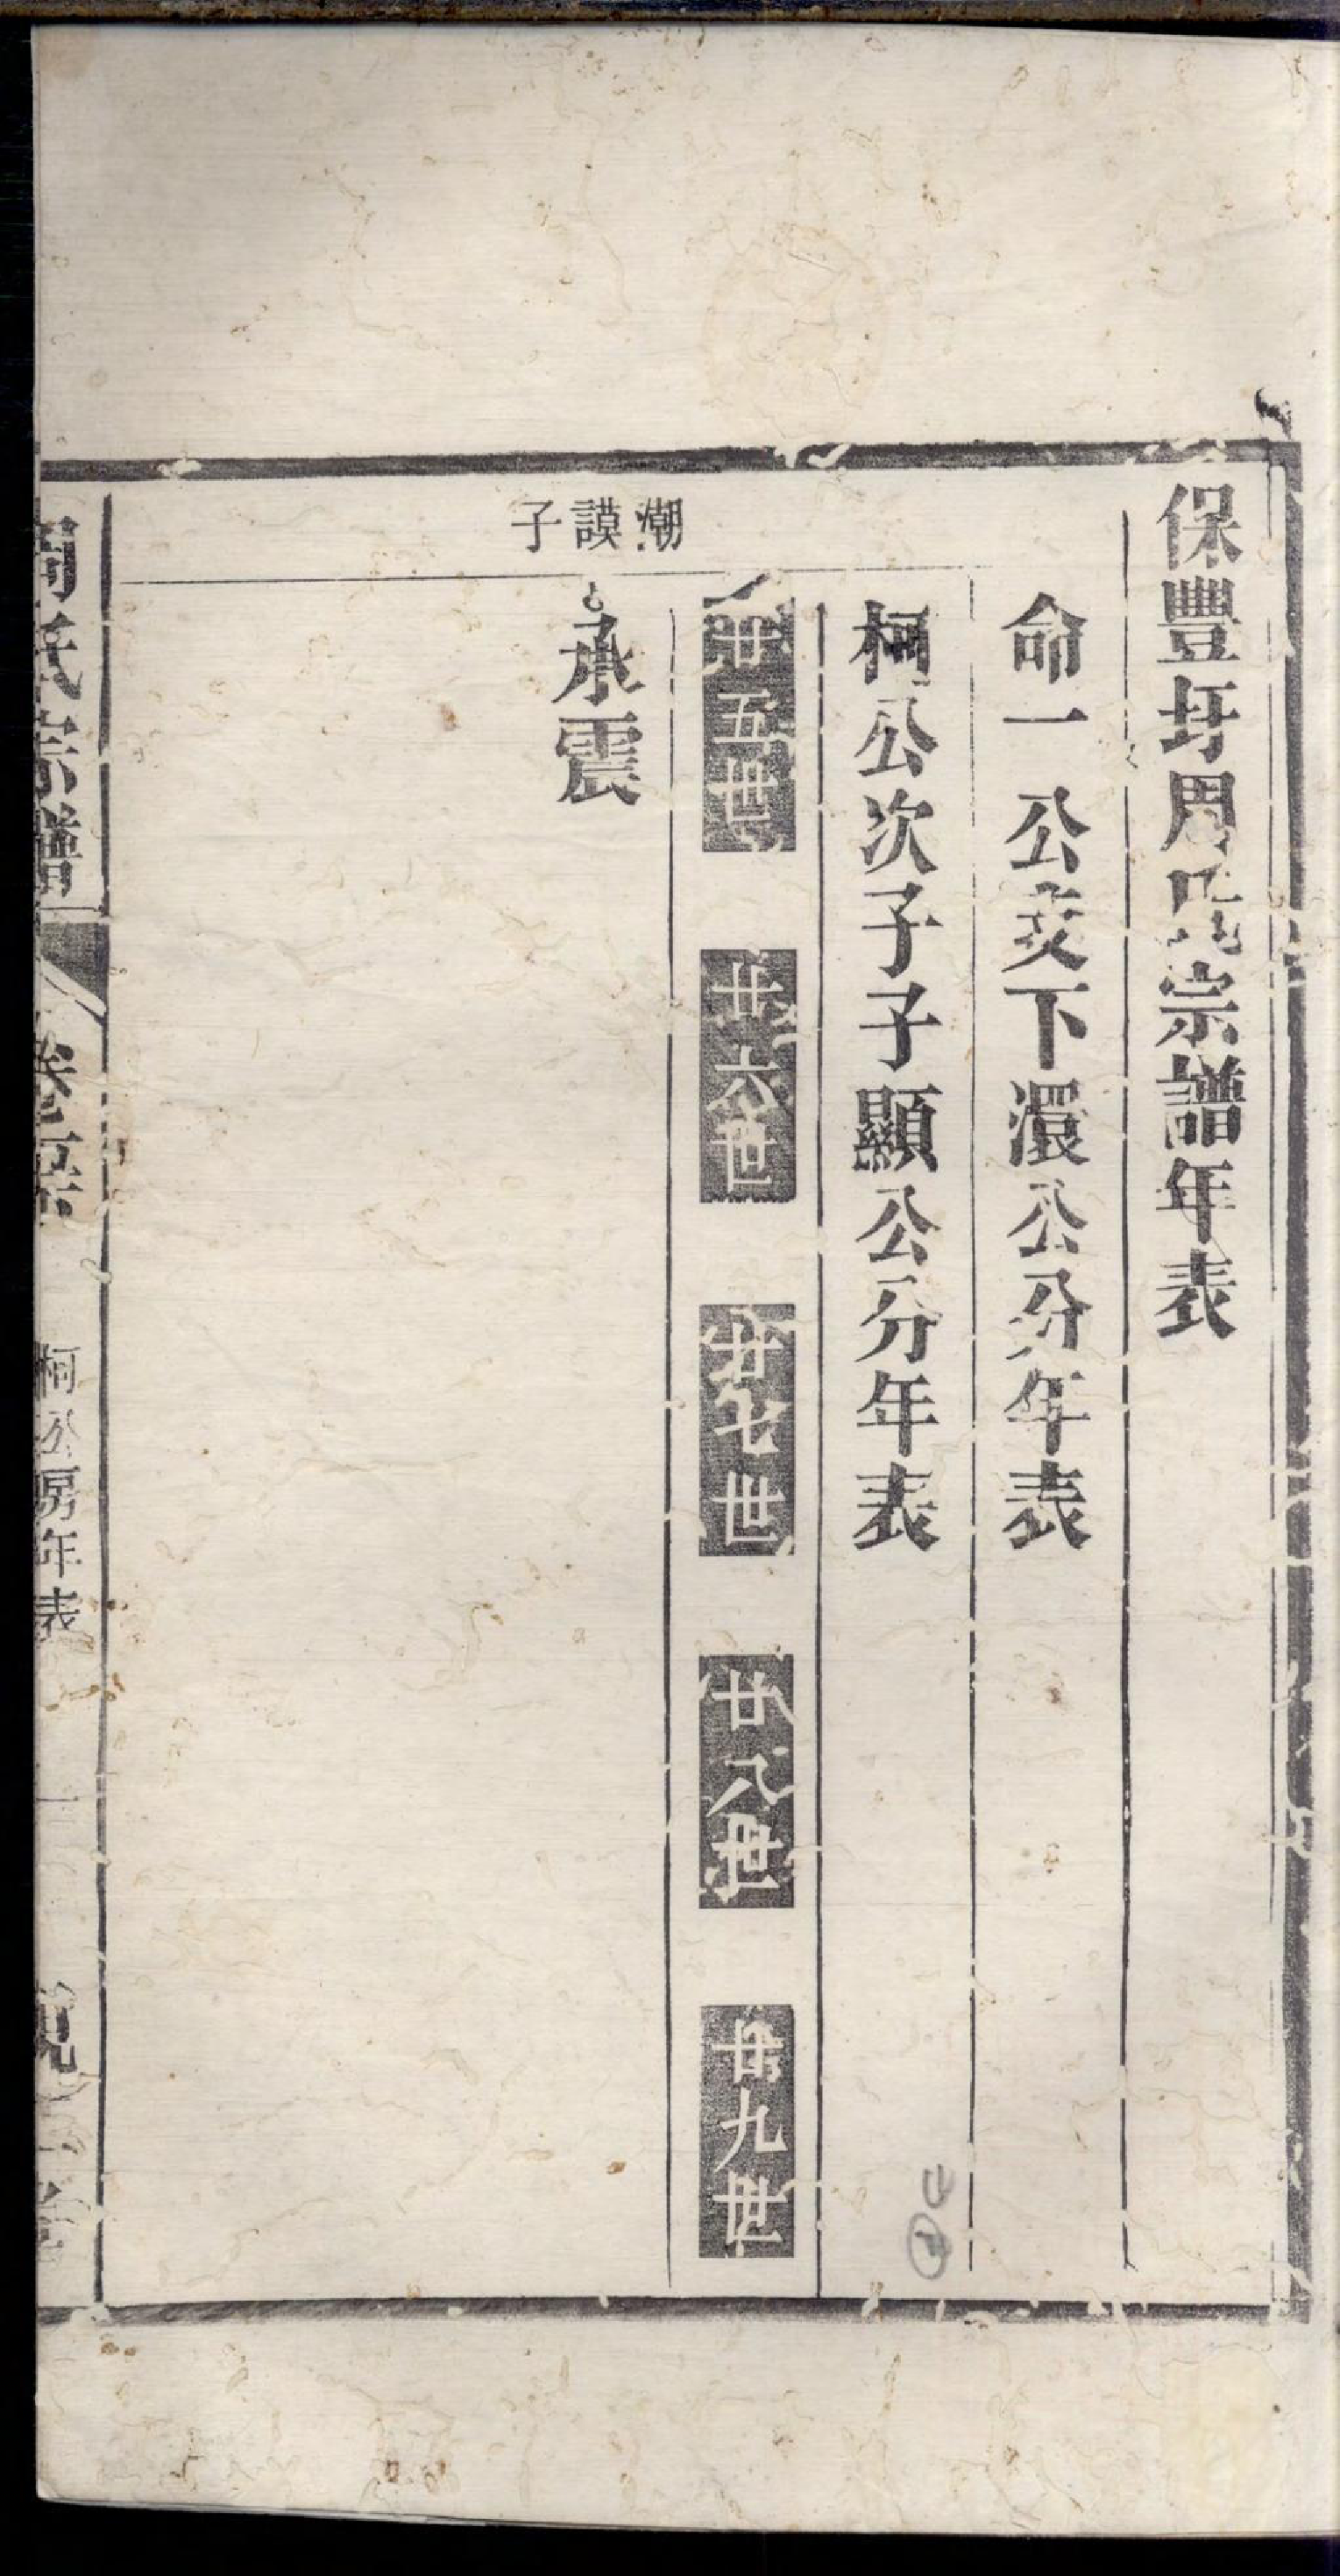 保豐圩周氏宗譜年表
命一公支下澴公分年表
柯公次子子顯公分年表
廿五世
廿六世
廿七世
廿八世
廿九世
潮謨子
承震
周氏宗譜
卷
柯公房年表
一